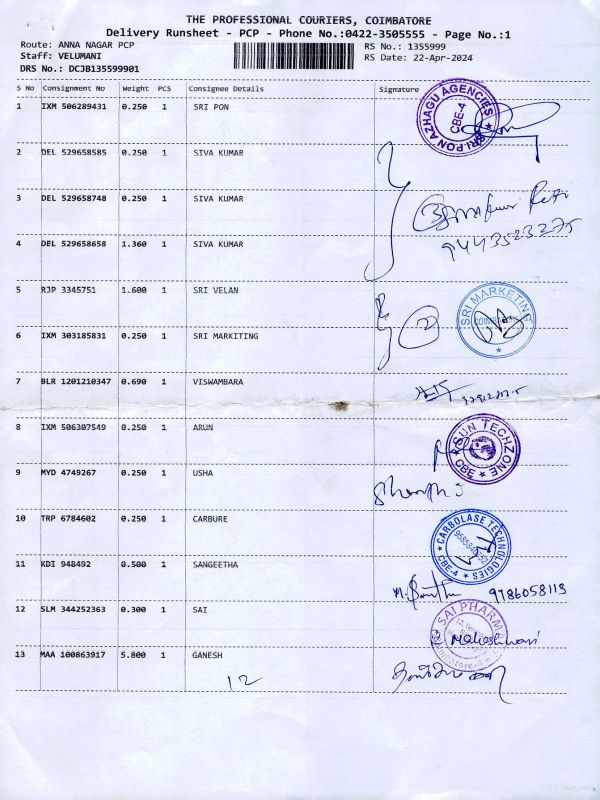 THE PROFESSIONAL COURIERS, COIMBATORE
Delivery Runsheet - PCP - Phone No.:0422-3505555 - Page No.:1
Route: ANNA NAGAR PCP RS No.: 1355999
Staff: VELUMANI RS Date: 22-Apr-2024
DRS No.: DCJB135599901
S No Consignment No Weight PCS Consignee Details Signature
1 IXM 506289431 0.250 1 SRI PON
SRI PON AZHAGU AGENCIES CBE-4
2 DEL 529658585 0.250 1 SIVA KUMAR
3 DEL 529658748 0.250 1 SIVA KUMAR
3
9443523275
4 DEL 529658658 1.360 1 SIVA KUMAR
5 RJP 3345751 1.600 1 SRI VELAN
2
SRI MARKETING
6 IXM 303185831 0.250 1 SRI MARKITING
7 BLR 1201210347 0.690 1 VISWAMBARA
8 IXM 506307549 0.250 1 ARUN
SUN TECHZONE CBE
9 MYD 4749267 0.250 1 USHA
10 TRP 6784602 0.250 1 CARBURE
CARBOLASE TECHNOLOGIES CBE-4
11 KDI 948492 0.500 1 SANGEETHA
9786058113
12 SLM 344252363 0.300 1 SAI
SAI PHARM
Maheshwari
13 MAA 100863917 5.800 1 GANESH
12